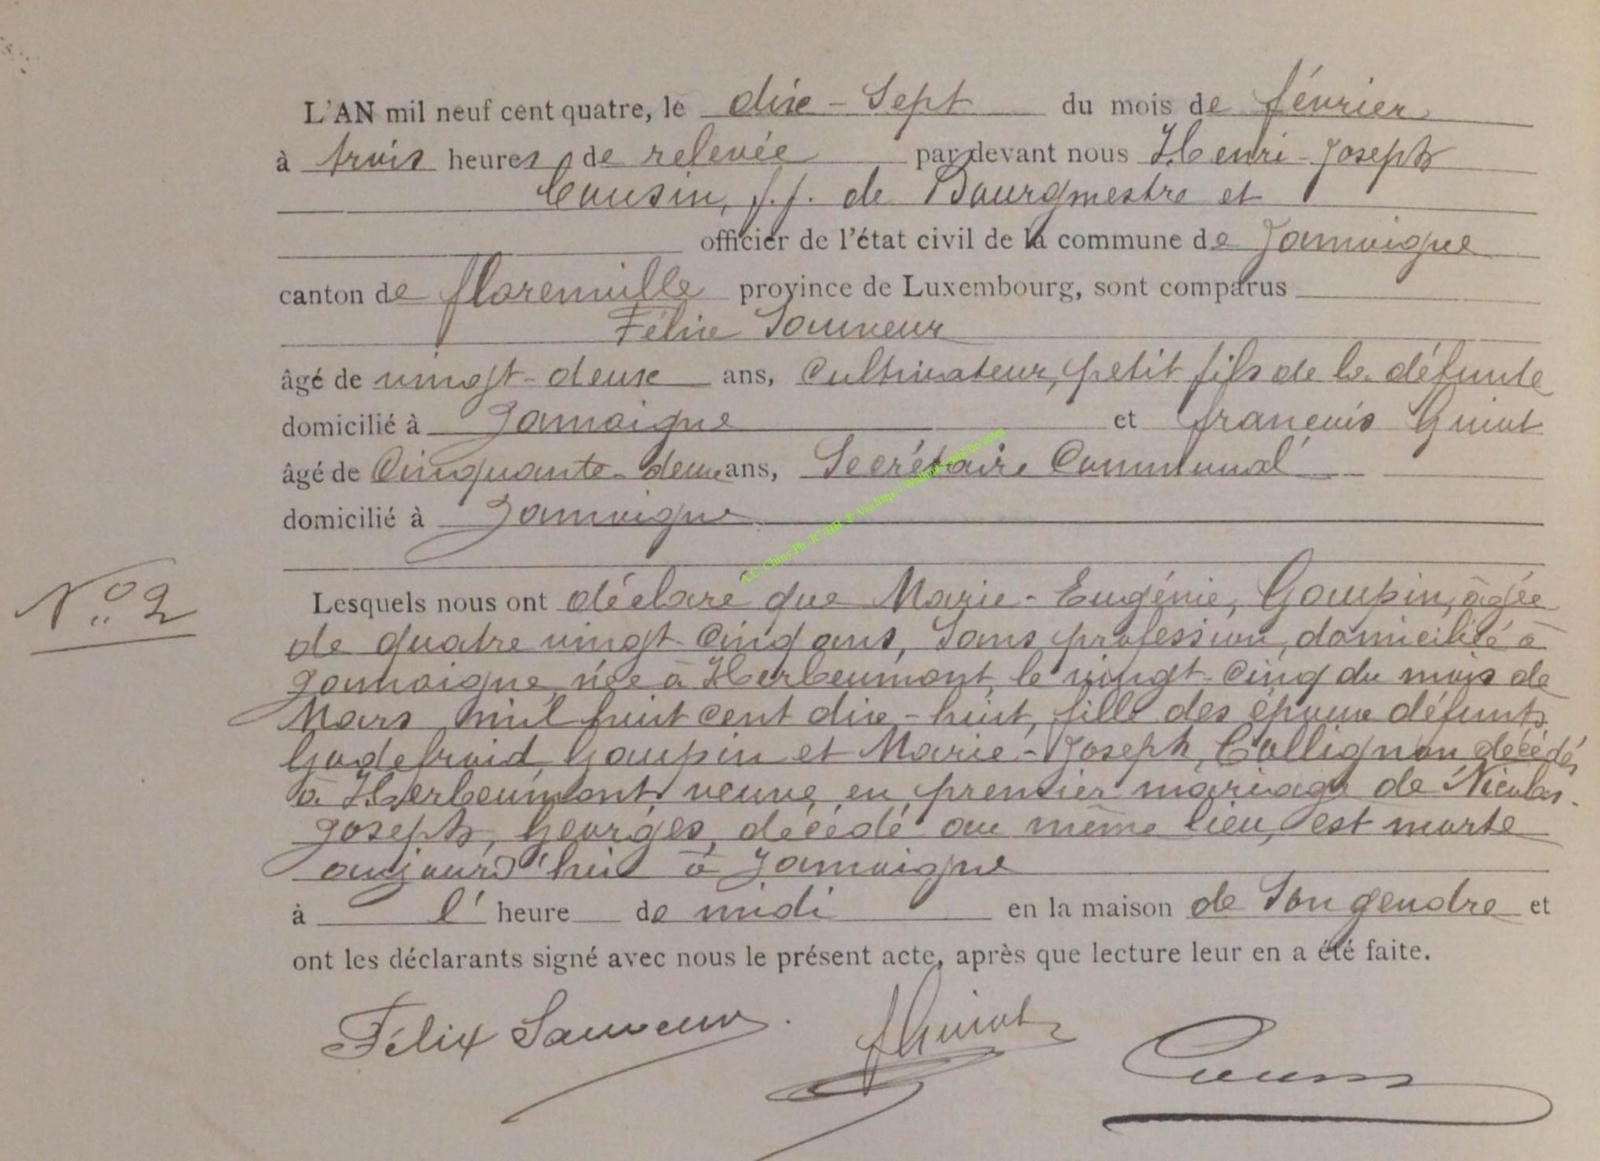 L'AN mil neuf cent quatre, le dix-Sept du mois de février
à trois heures, de relevée par devant nous Henri-Joseph
Cousin, f.f. de Bourgmestre et
officier de l'état civil de la commune de Jamoigne
canton de florenville province de Luxembourg, sont comparus
Félix Sauveur
âgé de vingt-deux ans, Cultivateur, petit fils de la défunte
domicilié à Jamoigne et francois Guiot
âgé de Cinquante-deux ans, Secrétaire Communal
domicilié à Jamoigne
N° 2
Lesquels nous ont déclaré que Marie-Eugénie, Goupin, âgée
de quatre vingt-Cinq ans, Sans profession, domicilié à
Jamoigne, née à Herbeumont, le vingt-Cinq du mois de
Mars mil huit Cent dix-huit, fille des époux défunts
Godefroid Goupin et Marie-Joseph, Collignon décédés
à Herbeumont, veuve en premier mariage de Nicolas-
Joseph, Georges, décédé au même lieu, est morte
aujourd'hui à Jamoigne
à l' heure de midi en la maison de Son gendre et
ont les déclarants signé avec nous le présent acte, après que lecture leur en a été faite.
Félix Sauveur. fGuiot Cousin